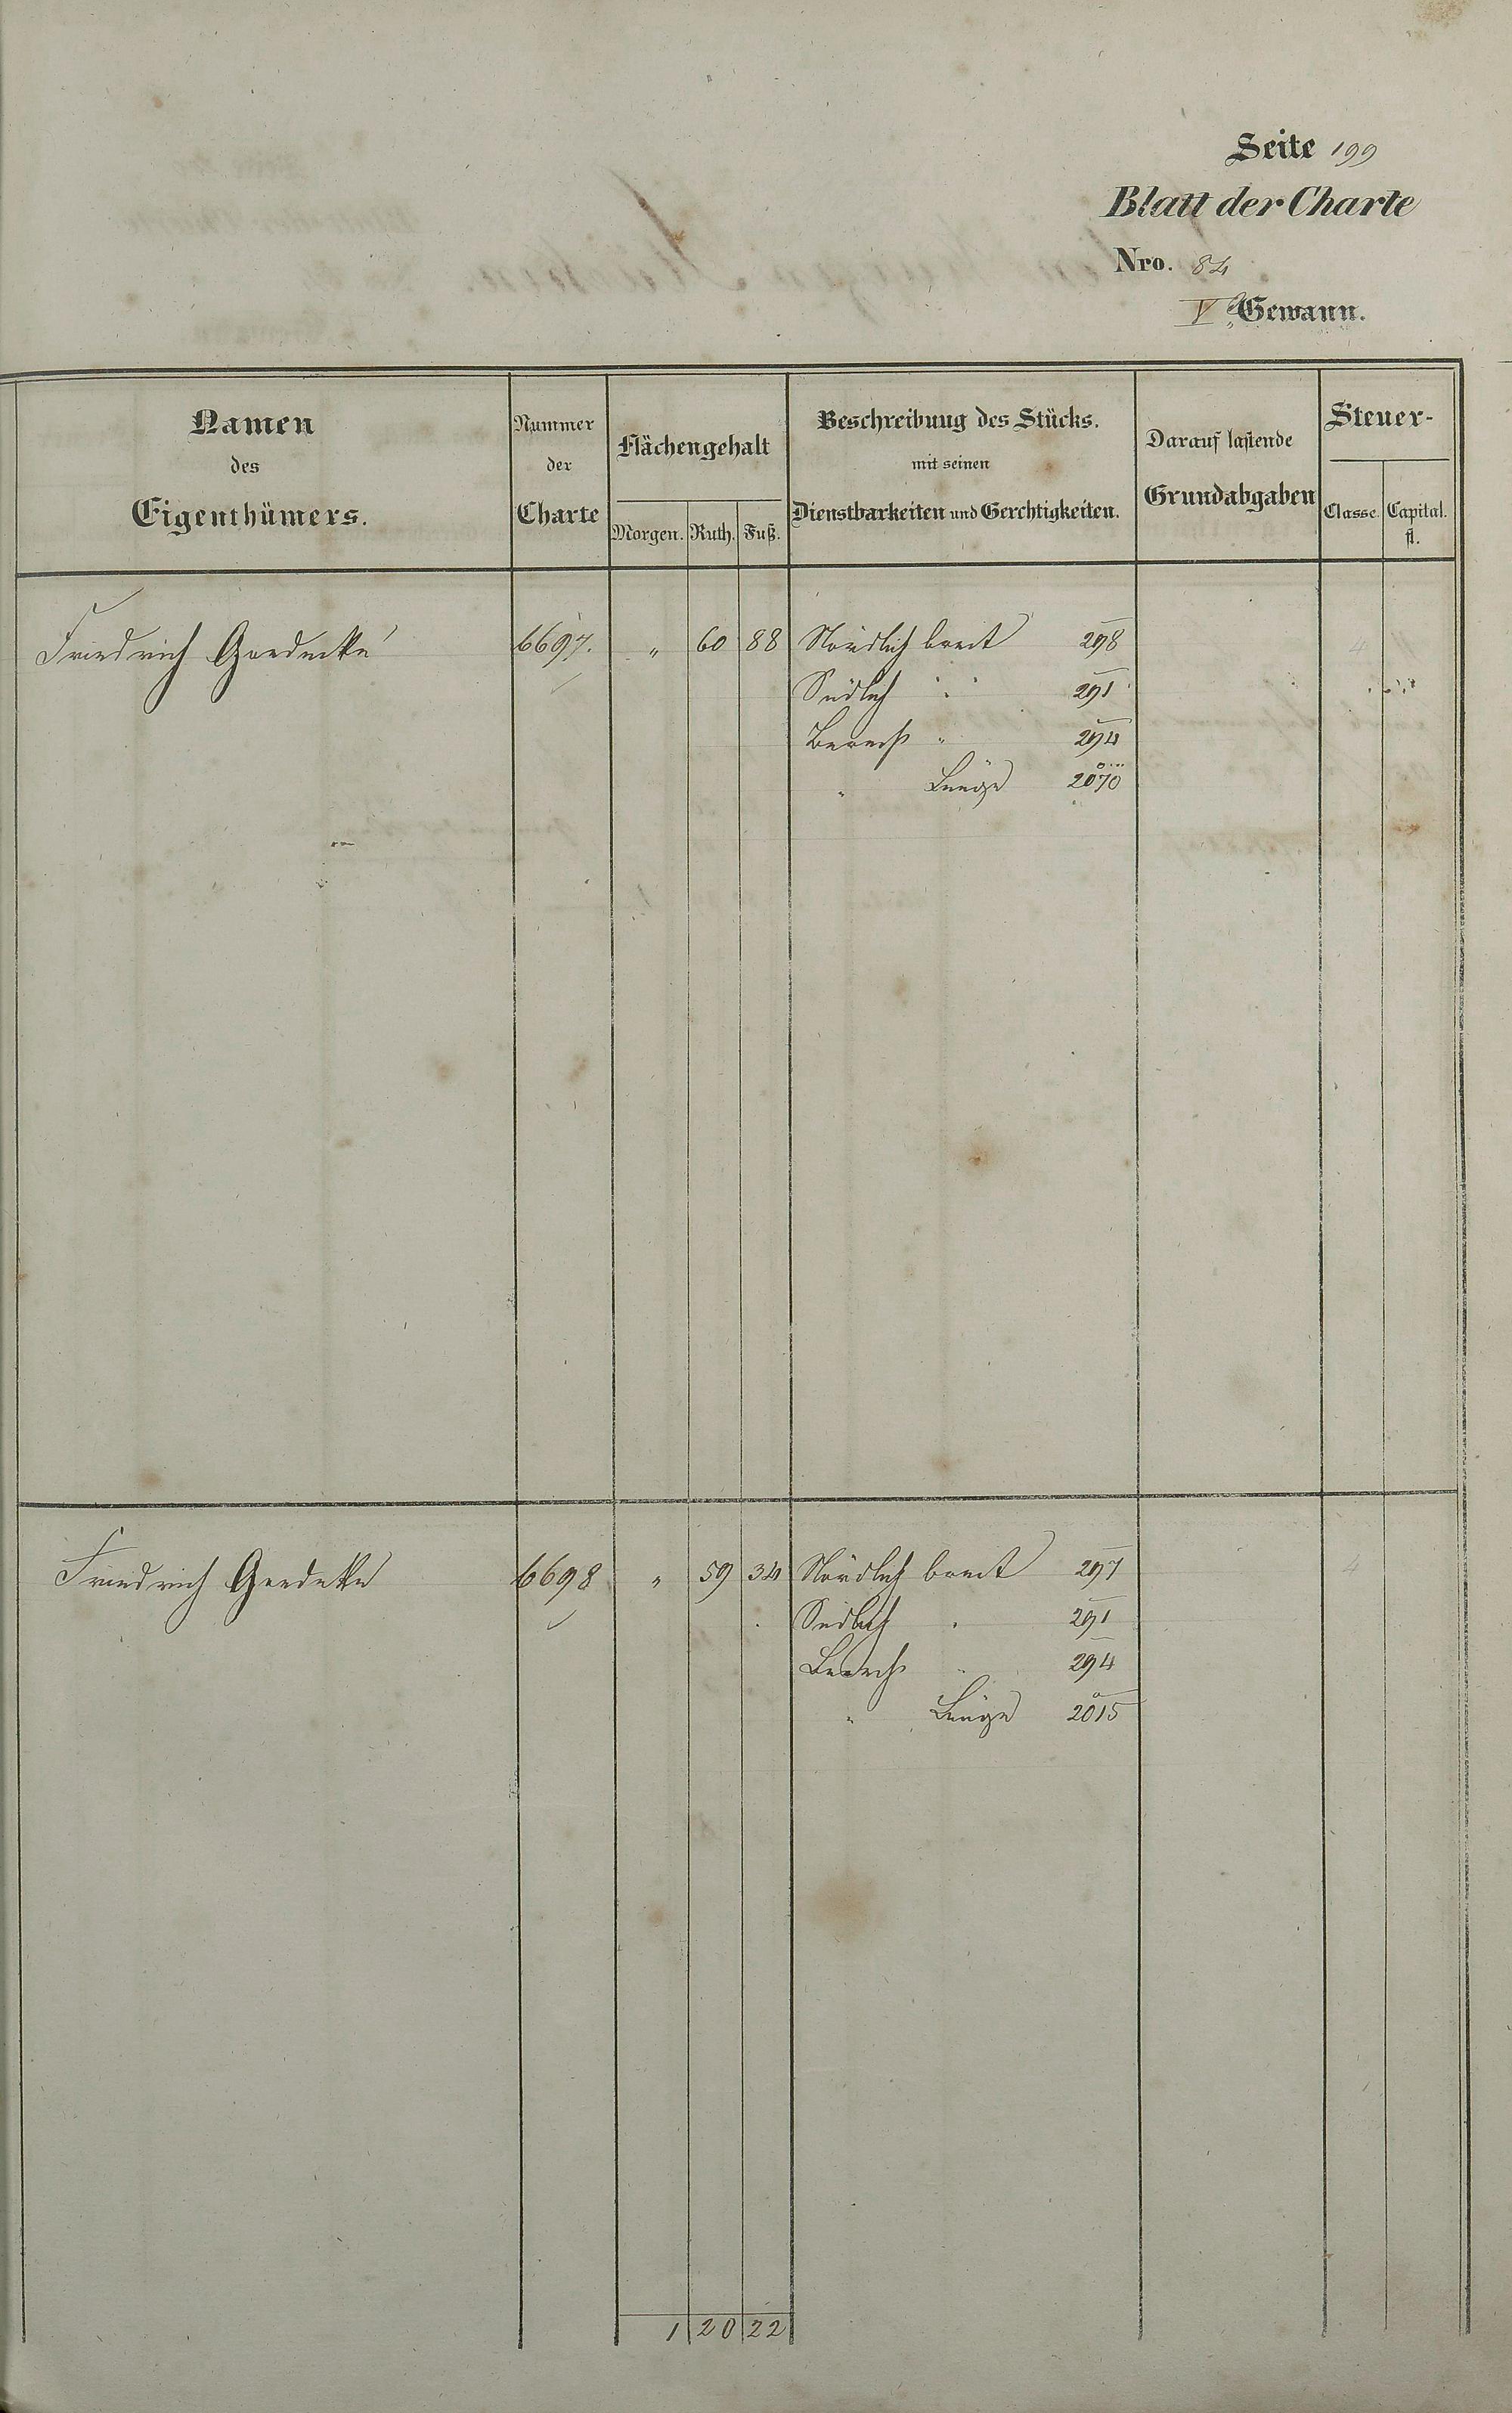 Seite 199
Blatt der Charte
Nro. 84
V Gewann.
Namen des Eigenthümers.
Nummer der Charte
Flächengehalt
Morgen. Ruth. Fuß.
Beschreibung des Stücks. mit seinen Dienstbarkeiten und Gerchtigkeiten.
Darauf lastende Grundabgaben
Steuer-
Classe. Capital. fl.
Friedrich Goedecke 6697. " 60 88 Nördlich breit 298 4
Südlich " 291
Berech " 294
" Länge 2070
Friedrich Goedecke 6698 " 59 34 Nördlich breit 297 4
Südlich " 291
Berech " 294
" Länge 2015
1 20 22